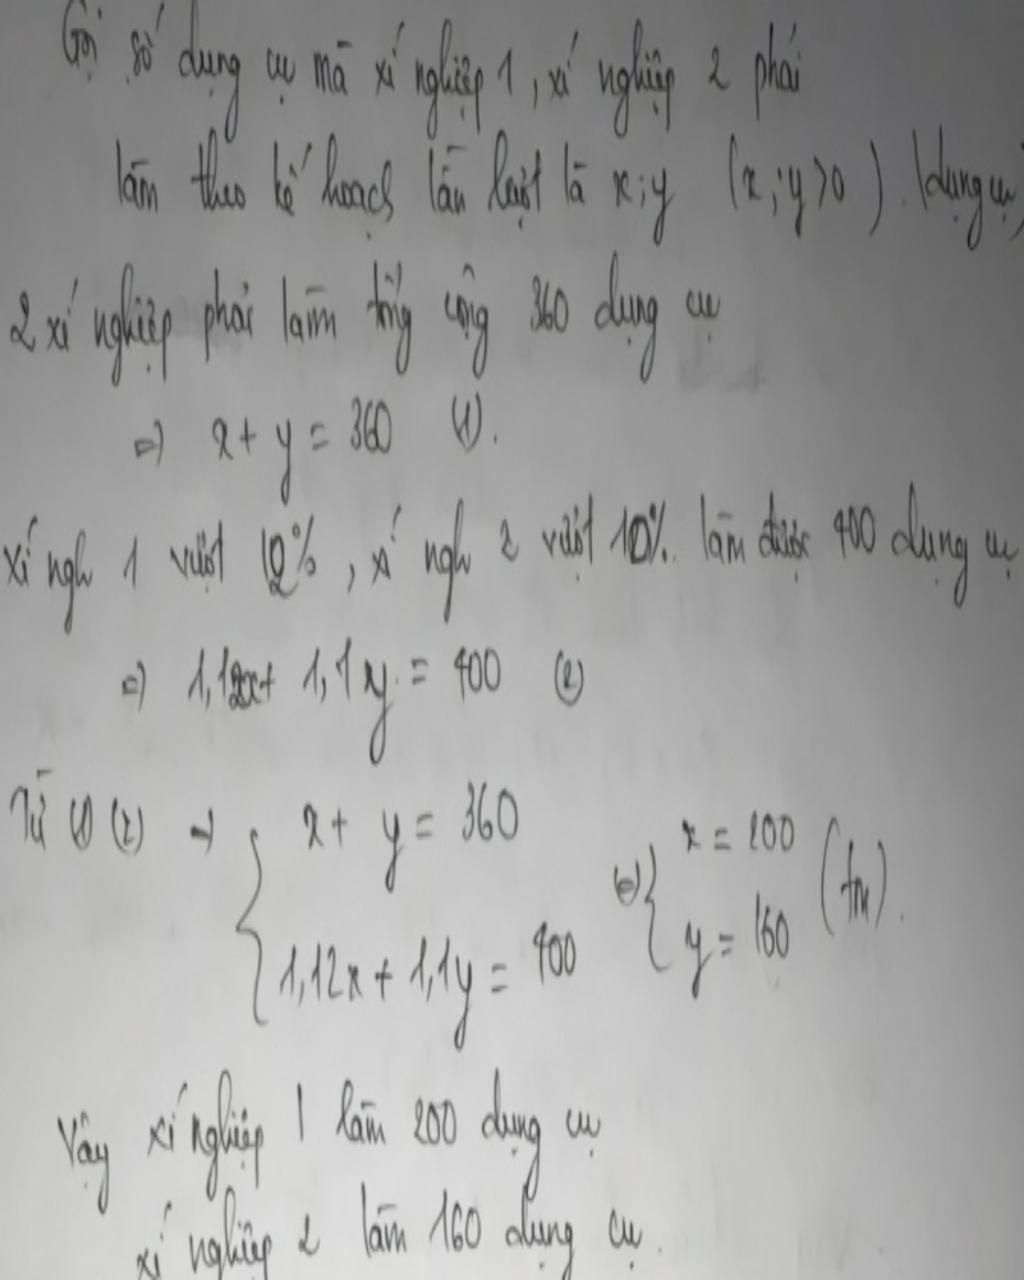 Gọi số dụng cụ mà xí nghiệp 1, xí nghiệp 2 phải
làm theo kế hoạch lần lượt là x; y (x; y > 0). (dụng cụ)
2 xí nghiệp phải làm tổng cộng 360 dụng cụ
=> x + y = 360 (1).
xí ngh 1 vượt 12%, xí ngh 2 vượt 10% làm được 400 dụng cụ
=> 1,12x + 1,1y = 400 (2)
Từ (1) (2) => { x + y = 360
1,12x + 1,1y = 400
(=) { x = 200
y = 160 (tm).
Vậy xí nghiệp 1 làm 200 dụng cụ
xí nghiệp 2 làm 160 dụng cụ.